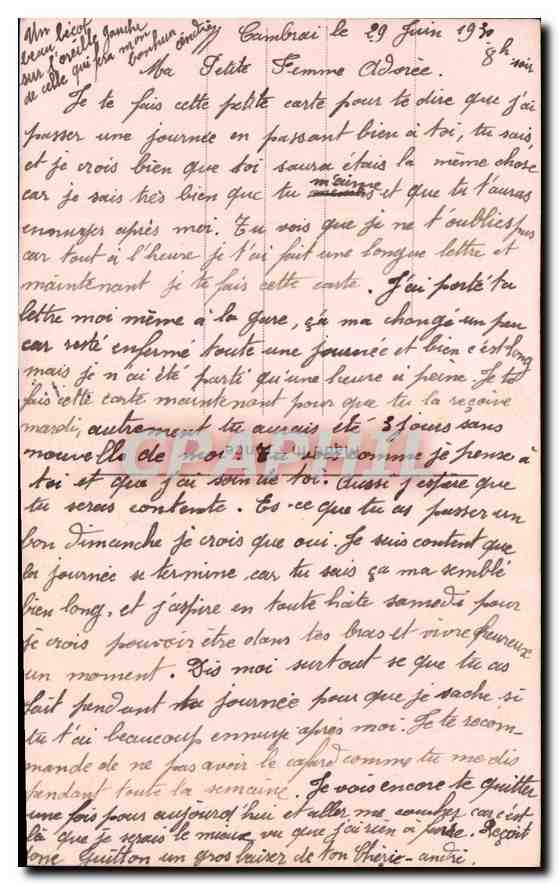 Un bécot
beau
sur l'oreille gauche
de celle qui fera mon
bonheur andré
Cambrai le 29 Juin 1930
8h soir
Ma Petite Femme Adorée.
Je te fais cette petite carte pour te dire que j'ai
passer une journée en passant bien à toi, tu sais
et je crois bien que toi saura étais la même chose
car je sais très bien que tu m'aime et que tu t'auras
ennuyer après moi. Tu vois que je ne t'oublies pas
car tout à l'heure je t'ai fait une longue lettre et
maintenant je te fais cette carte. J'ai porté ta
lettre moi même à la gare, ça ma changé un peu
car resté enfermé toute une journée et bien c'est long
mais je n'ai été parti qu'une heure a peine. Je te
fais cette carte maintenant pour que tu la reçoive
mardi, autrement tu aurais été 3 jours sans
nouvelle de moi. Tu vois comme je pense à
toi et que j'ai soin de toi. Aussi j'espère que
tu seras contente. Es-ce que tu as passer un
bon dimanche je crois que oui. Je suis content que
la journée se termine car tu sais ça ma semblé
bien long, et j'aspire en toute hâte samedi pour
je crois pouvoir être dans tes bras et vivre heureux
un moment. Dis moi surtout se que tu as
fait pendant ta journée pour que je sache si
tu t'ai beaucoup ennuyé après moi. Je te recom-
mande de ne pas avoir le cafard comme tu me dis
pendant toute la semaine. Je vois encore te quitter
une fois pour aujourd'hui et aller me coucher car c'est
là que je serais le mieux vu que j'ai rien à faire. Reçoit
donc Guitton un gros baiser de ton Chérie - andré.
CPAPHIL